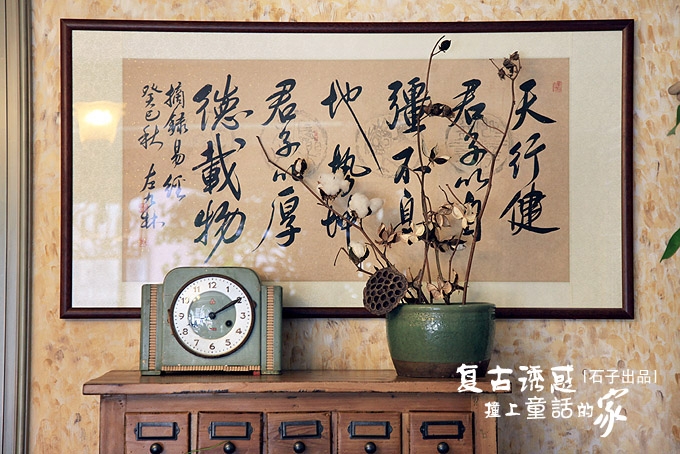 天行健
君子以自
彊不息
地勢坤
君子以厚
德載物
摘錄易經
癸巳秋 左
复古诱惑「石子出品」
撞上童話的家